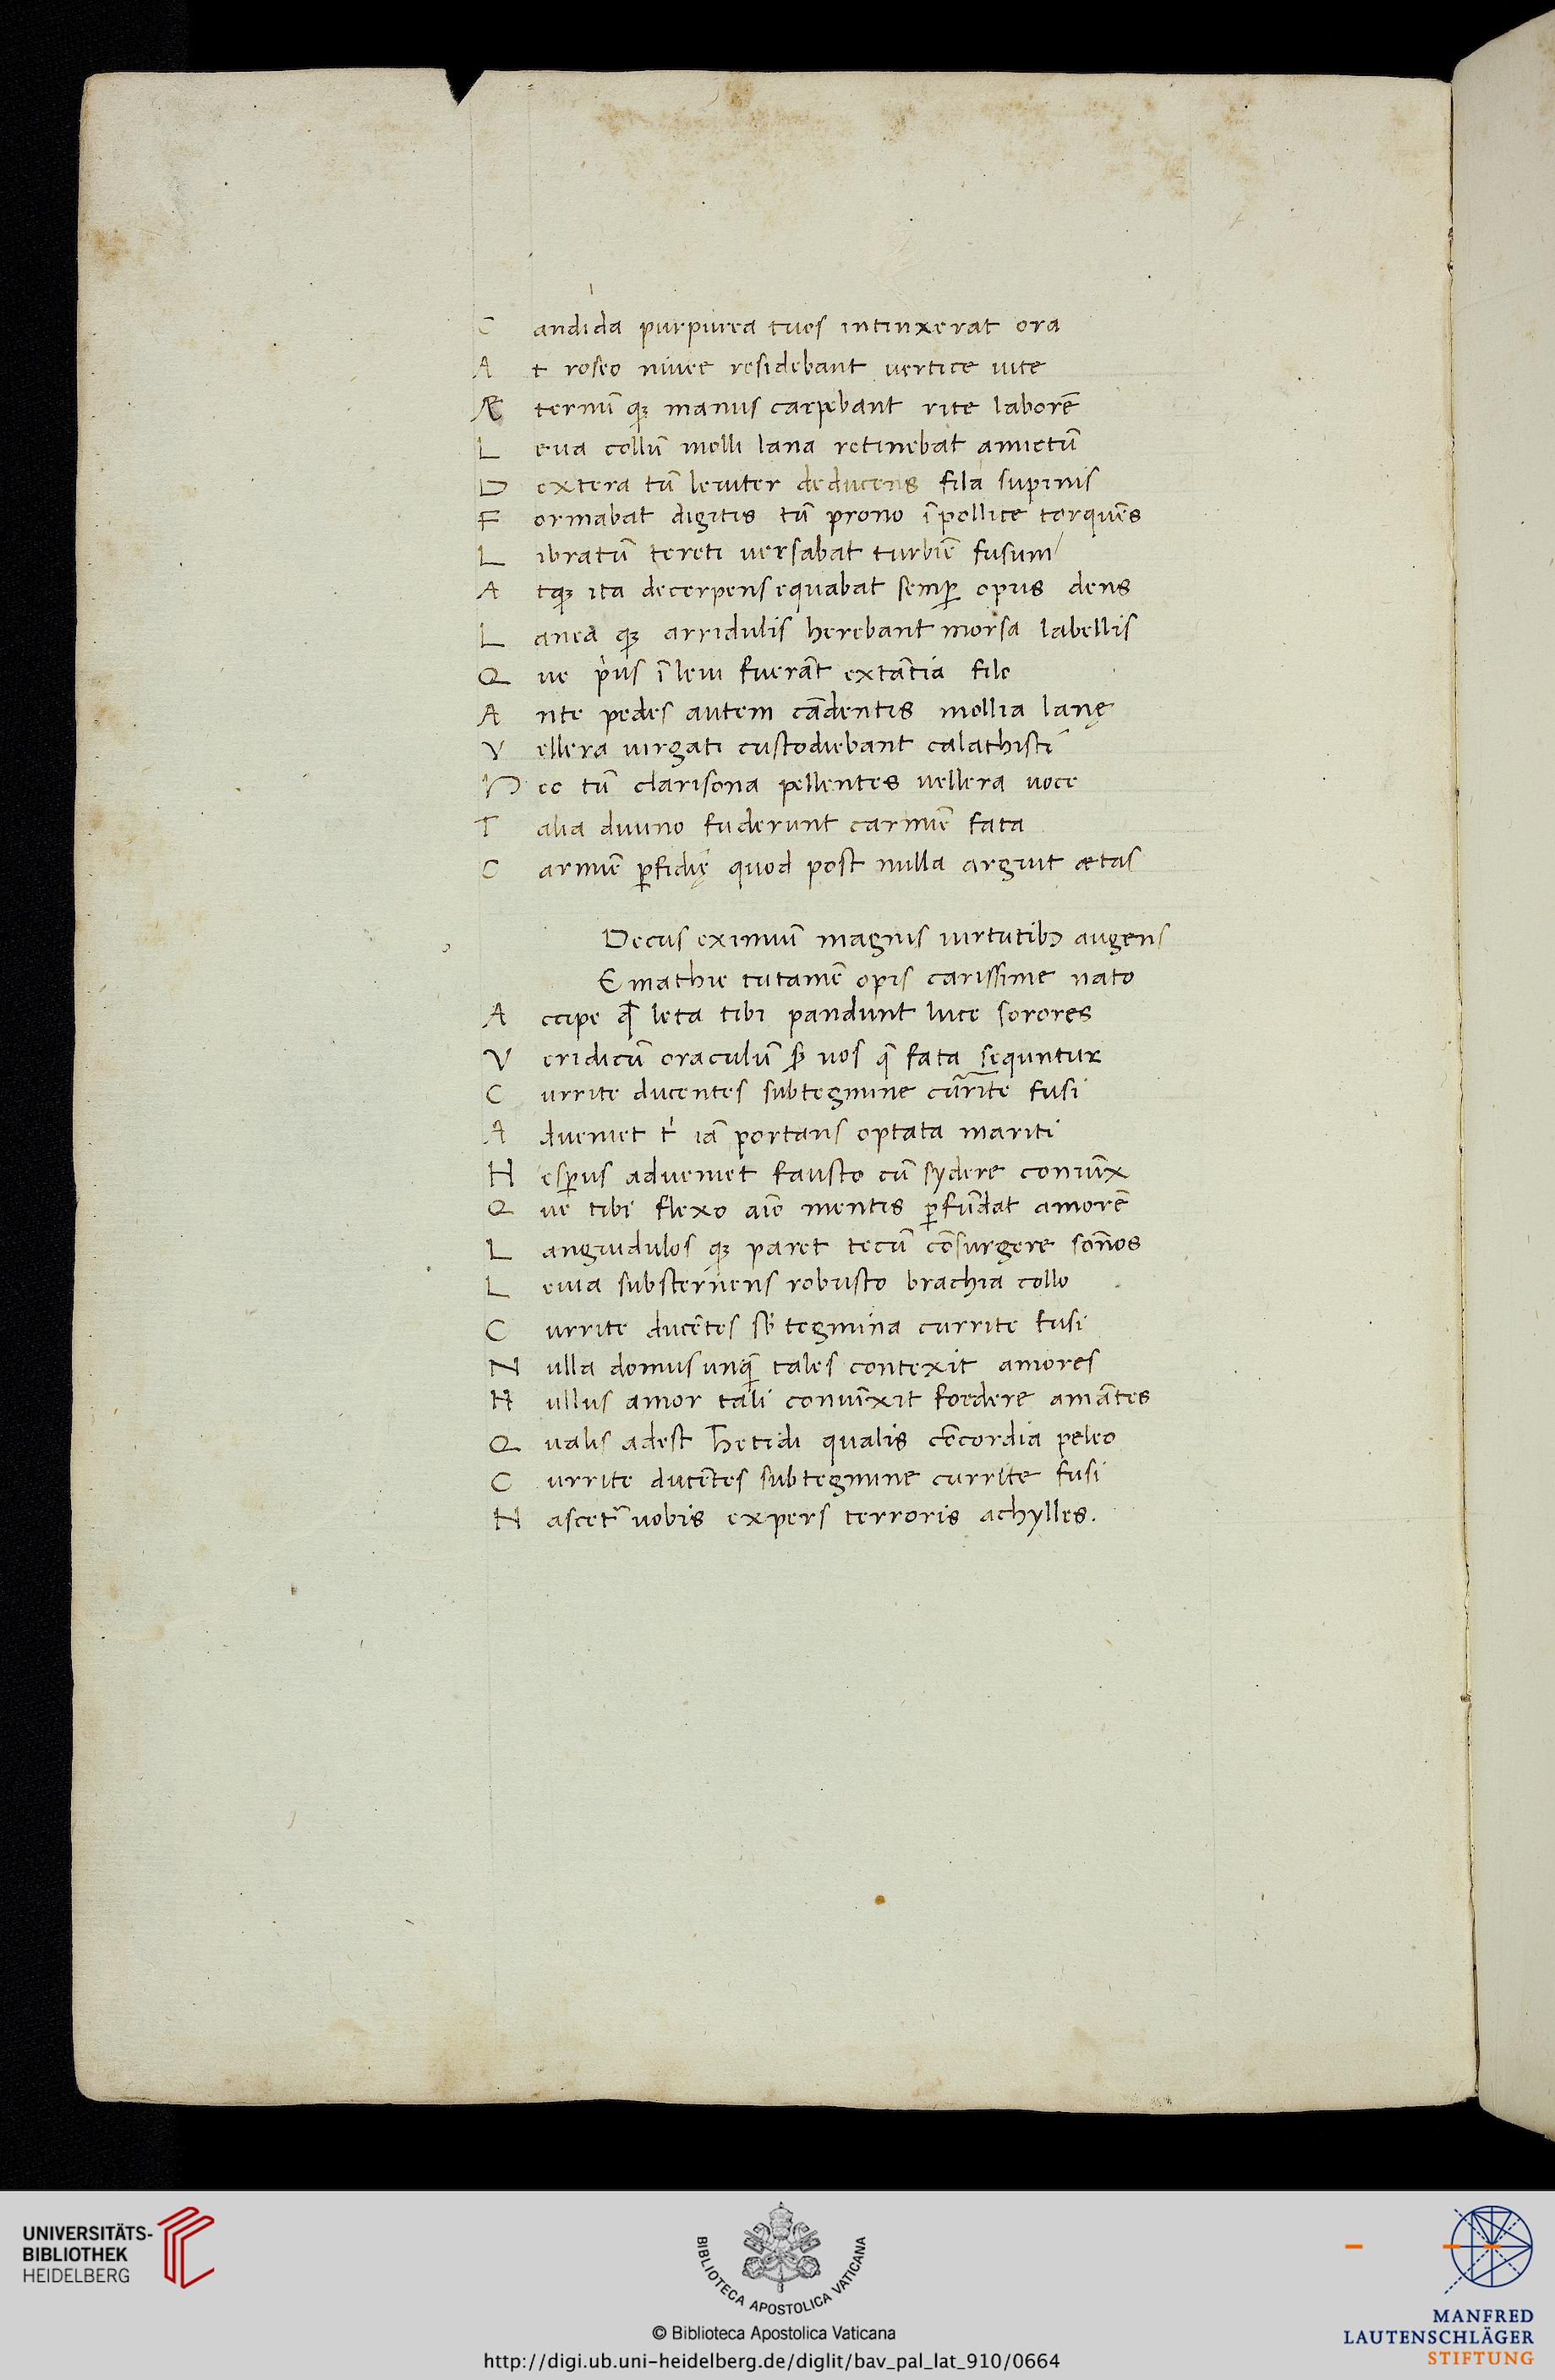 C andida purpurea tuos intinxerat ora
A t roseo nivee residebant vertice vite
Æ ternū qȝ manus carpebant rite laborē
L eva collū molli lana retinebat amictū
D extera tū leviter deducens fila supinis
F ormabat digitis tū prono ī pollice torquēs
L ibratū tereti versabat turbiē fusum
A tqȝ ita decerpens equabat semꝑ opus dens
L anea qȝ arridulis herebant morsa labellis
Q ue pⁱus ī levi fuerāt extātia filo
A nte pedes autem cādentis mollia lanę
V ellera virgati custodiebant calathisti
H ec tū clarisona pellentes vellera voce
T alia divino fuderunt carmiē fata
C armiē ꝑfidię quod post nulla arguit ætas
Decus eximiū magnis virtutibȝ augens
Emathie tutamē opis carissime nato
A ccipe qđ leta tibi pandunt luce sorores
V eridicū oraculū sȝ vos q̄ fata sequntur
C urrite ducentes subtegmine currite fusi
A dveniet tⁱ iā portans optata mariti
H esꝑus adveniet fausto cū sydere coniūx
Q ue tibi flexo aīo mentis ꝑfūdat amorē
L anguidulos qȝ paret tecū cōsurgere sōnos
L evia substernens robusto brachia collo
C urrite ducētes sb tegmina currite fusi
N ulla domus unqᷓ tales contexit amores
N ullus amor tali coniūxit foedere amātes
Q ualis adest Thetidi qualis cōcordia peleo
C urrite ducētes subtegmine currite fusi
N ascet᷑ vobis expers terroris achylles.
UNIVERSITÄTS-
BIBLIOTHEK
HEIDELBERG
BIBLIOTECA APOSTOLICA VATICANA
© Biblioteca Apostolica Vaticana
http://digi.ub.uni-heidelberg.de/diglit/bav_pal_lat_910/0664
MANFRED
LAUTENSCHLÄGER
STIFTUNG